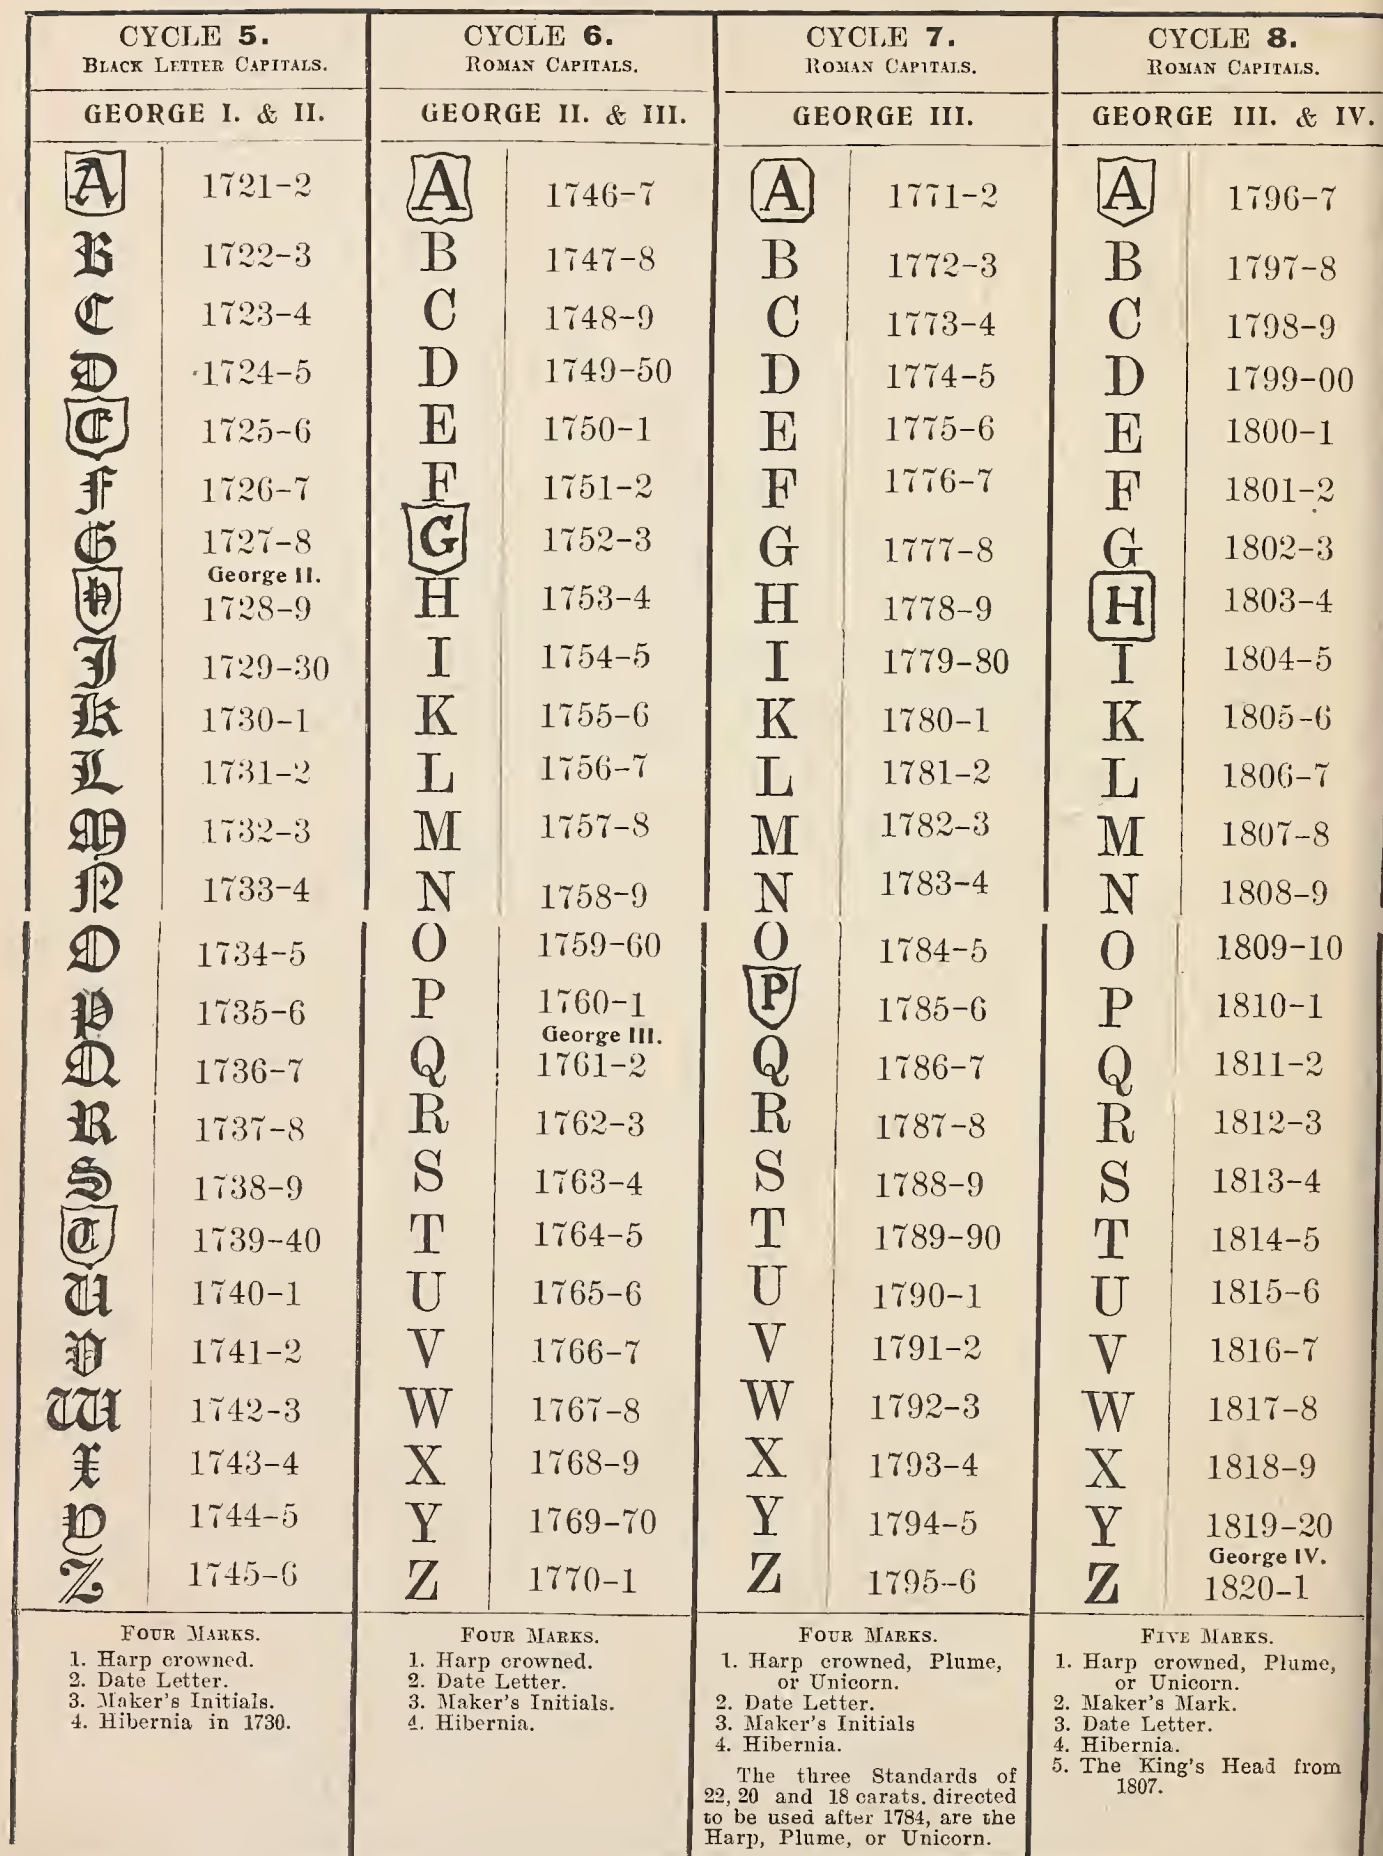 CYCLE 5.
BLACK LETTER CAPITALS.
GEORGE I. & II.
A 1721-2
B 1722-3
C 1723-4
D 1724-5
E 1725-6
F 1726-7
G 1727-8
George II.
H 1728-9
J 1729-30
K 1730-1
L 1731-2
M 1732-3
N 1733-4
O 1734-5
P 1735-6
Q 1736-7
R 1737-8
S 1738-9
T 1739-40
U 1740-1
V 1741-2
W 1742-3
X 1743-4
Y 1744-5
Z 1745-6
FOUR MARKS.
1. Harp crowned.
2. Date Letter.
3. Maker's Initials.
4. Hibernia in 1730.
CYCLE 6.
ROMAN CAPITALS.
GEORGE II. & III.
A 1746-7
B 1747-8
C 1748-9
D 1749-50
E 1750-1
F 1751-2
G 1752-3
H 1753-4
I 1754-5
K 1755-6
L 1756-7
M 1757-8
N 1758-9
O 1759-60
P 1760-1
George III.
Q 1761-2
R 1762-3
S 1763-4
T 1764-5
U 1765-6
V 1766-7
W 1767-8
X 1768-9
Y 1769-70
Z 1770-1
FOUR MARKS.
1. Harp crowned.
2. Date Letter.
3. Maker's Initials.
4. Hibernia.
CYCLE 7.
ROMAN CAPITALS.
GEORGE III.
A 1771-2
B 1772-3
C 1773-4
D 1774-5
E 1775-6
F 1776-7
G 1777-8
H 1778-9
I 1779-80
K 1780-1
L 1781-2
M 1782-3
N 1783-4
O 1784-5
P 1785-6
Q 1786-7
R 1787-8
S 1788-9
T 1789-90
U 1790-1
V 1791-2
W 1792-3
X 1793-4
Y 1794-5
Z 1795-6
FOUR MARKS.
1. Harp crowned, Plume,
or Unicorn.
2. Date Letter.
3. Maker's Initials
4. Hibernia.
The three Standards of
22, 20 and 18 carats. directed
to be used after 1784, are the
Harp, Plume, or Unicorn.
CYCLE 8.
ROMAN CAPITALS.
GEORGE III. & IV.
A 1796-7
B 1797-8
C 1798-9
D 1799-00
E 1800-1
F 1801-2
G 1802-3
H 1803-4
I 1804-5
K 1805-6
L 1806-7
M 1807-8
N 1808-9
O 1809-10
P 1810-1
Q 1811-2
R 1812-3
S 1813-4
T 1814-5
U 1815-6
V 1816-7
W 1817-8
X 1818-9
Y 1819-20
George IV.
Z 1820-1
FIVE MARKS.
1. Harp crowned, Plume,
or Unicorn.
2. Maker's Mark.
3. Date Letter.
4. Hibernia.
5. The King's Head from
1807.